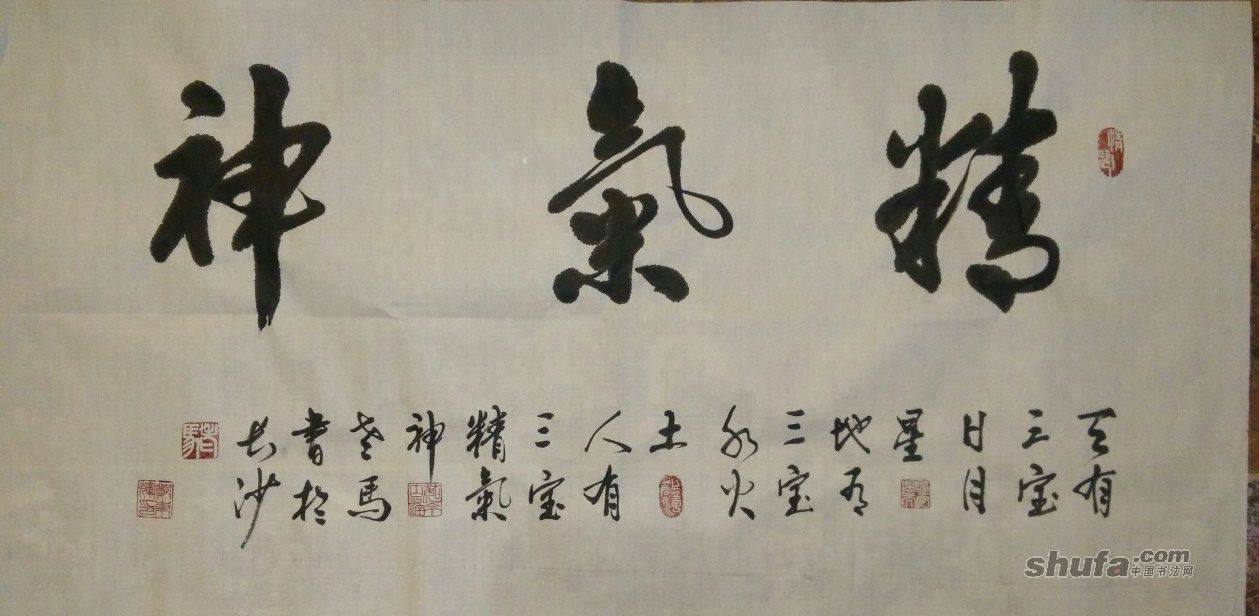 精氣神
天有
三宝
日月
星
地有
三宝
水火
土
人有
三宝
精氣
神
老馬
書於
长沙
shufa.com
中国书法网